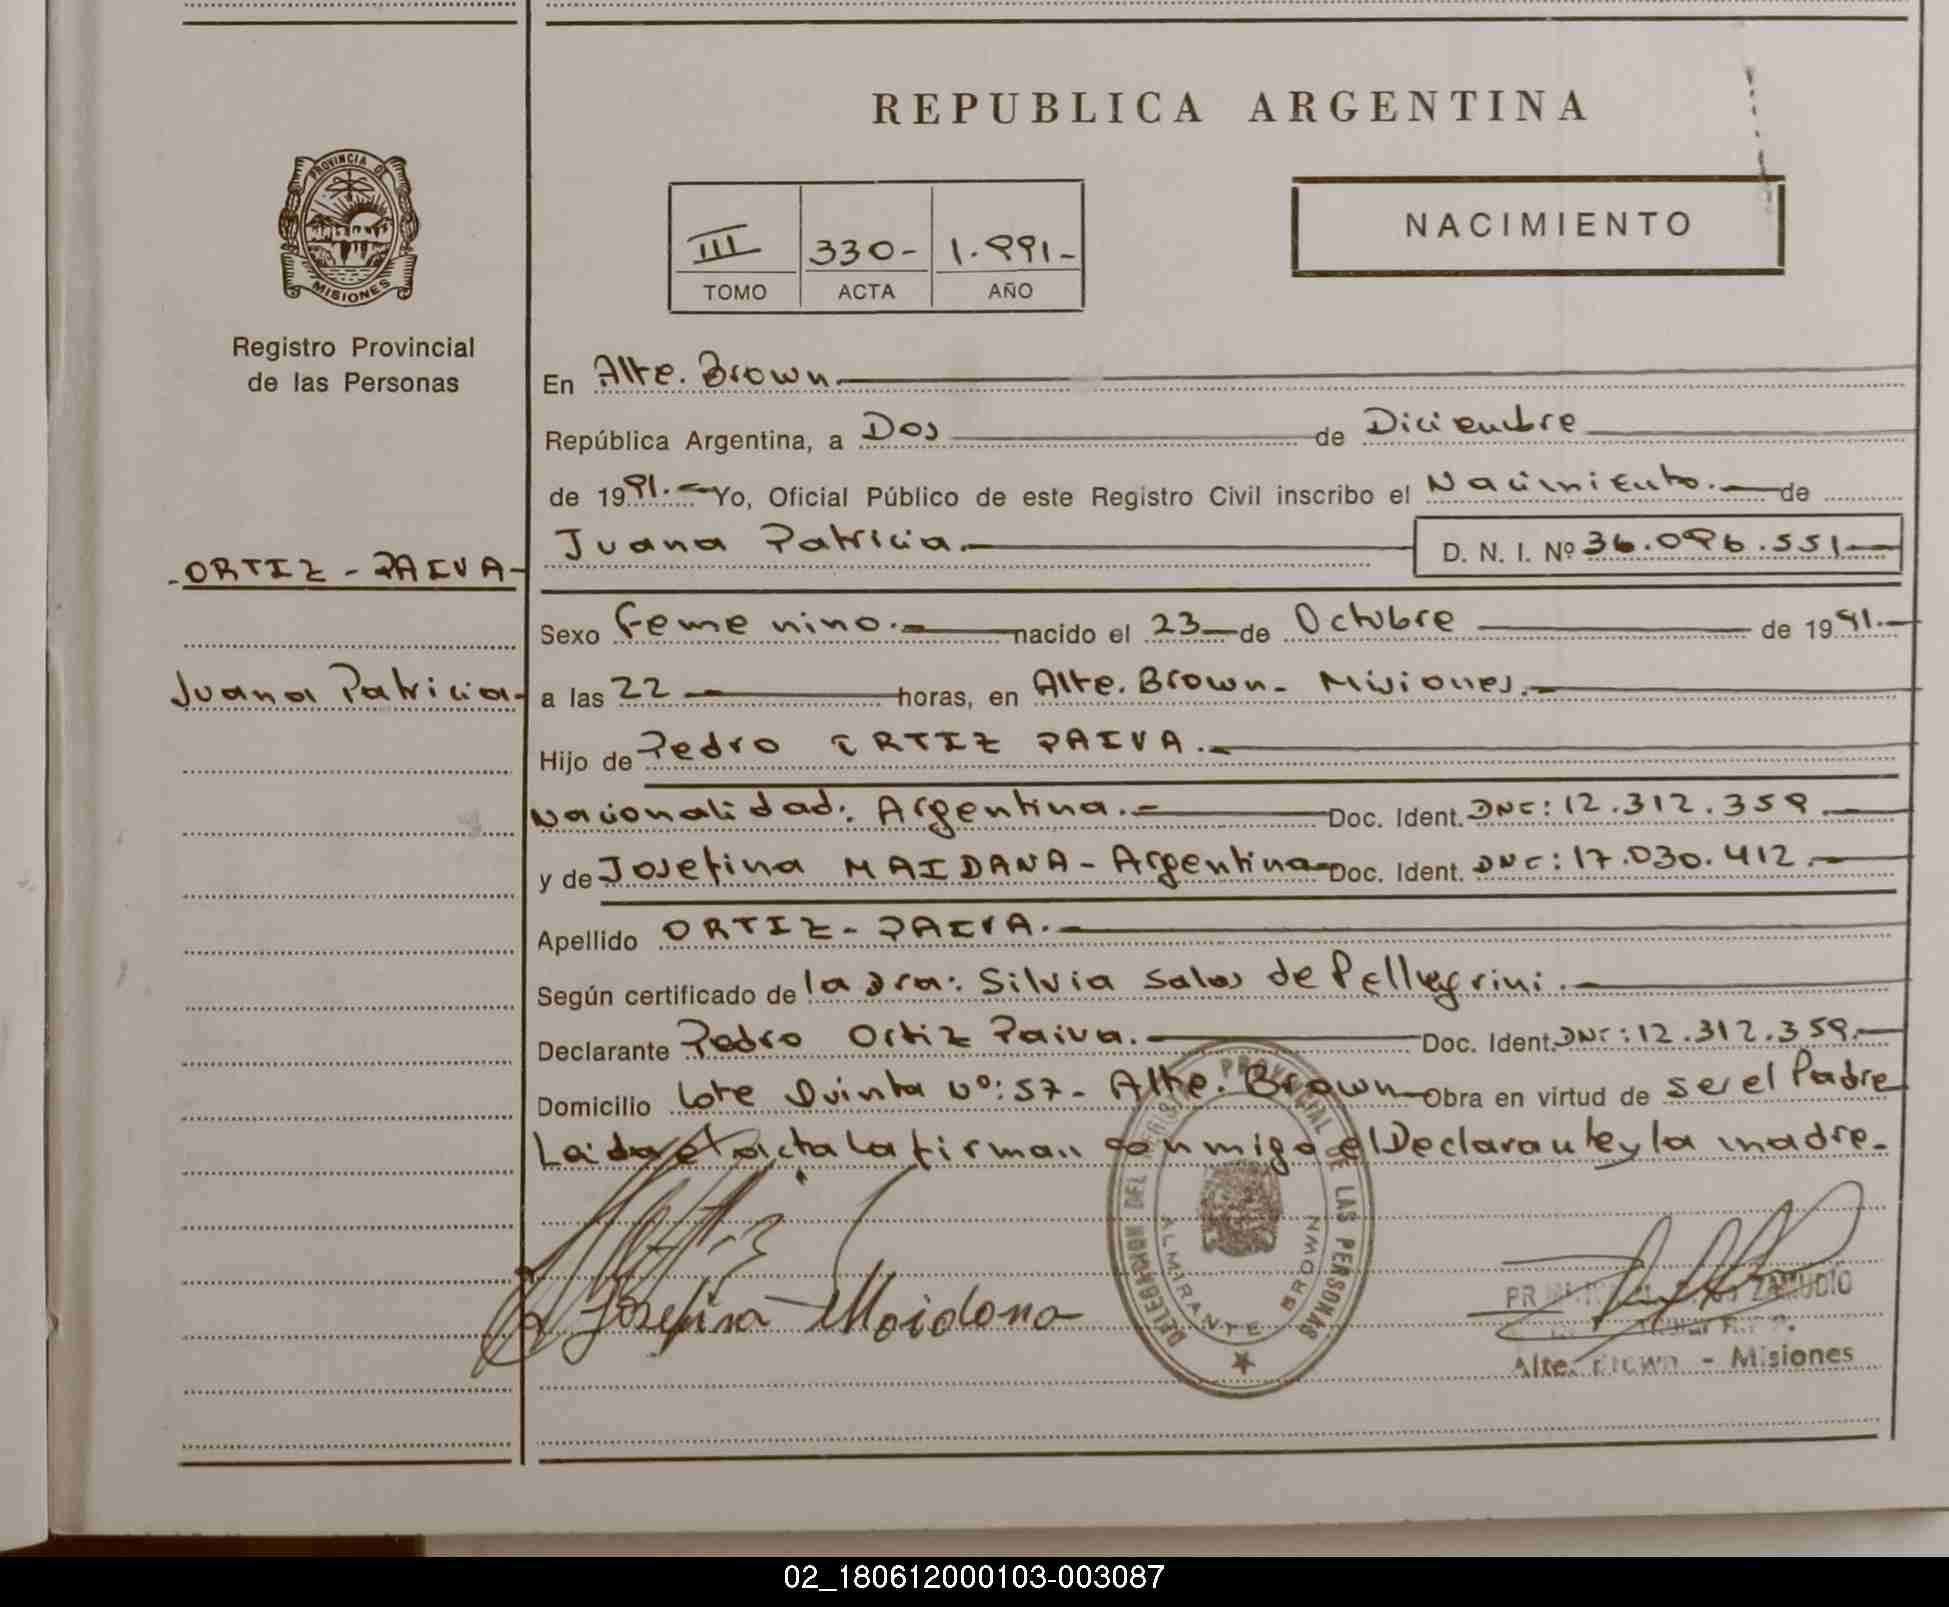 REPUBLICA ARGENTINA
NACIMIENTO
III 330- 1.991-
TOMO ACTA AÑO
PROVINCIA DE
MISIONES
Registro Provincial
de las Personas
ORTIZ - PAIVA-
Juana Patricia-
En Alte. Brown.
República Argentina, a Dos de Diciembre
de 1991.- Yo, Oficial Público de este Registro Civil inscribo el Nacimiento. de
Juana Patricia. D. N. I. Nº 36.096.551
Sexo Femenino. nacido el 23 de Octubre de 1991.-
a las 22 horas, en Alte. Brown- Misiones.
Hijo de Pedro ORTIZ PAIVA.
Nacionalidad: Argentina. Doc. Ident. DNI: 12.312.359
y de Josefina MAIDANA - Argentina Doc. Ident. DNI: 17.030.412.
Apellido ORTIZ - PAIVA.
Según certificado de la Dra: Silvia Salas de Pellegrini.
Declarante Pedro Ortiz Paiva. Doc. Ident. DNI: 12.312.359.
Domicilio Lote Quinta Nº: 57- Alte. Brown Obra en virtud de ser el Padre
Leida el acta la firman conmigo el Declarante y la madre.
DELEGACION DEL REGISTRO PROVINCIAL DE LAS PERSONAS
ALMIRANTE BROWN
Josefina Maidana
ZAMUDIO
Alte. Brown - Misiones
02_180612000103-003087